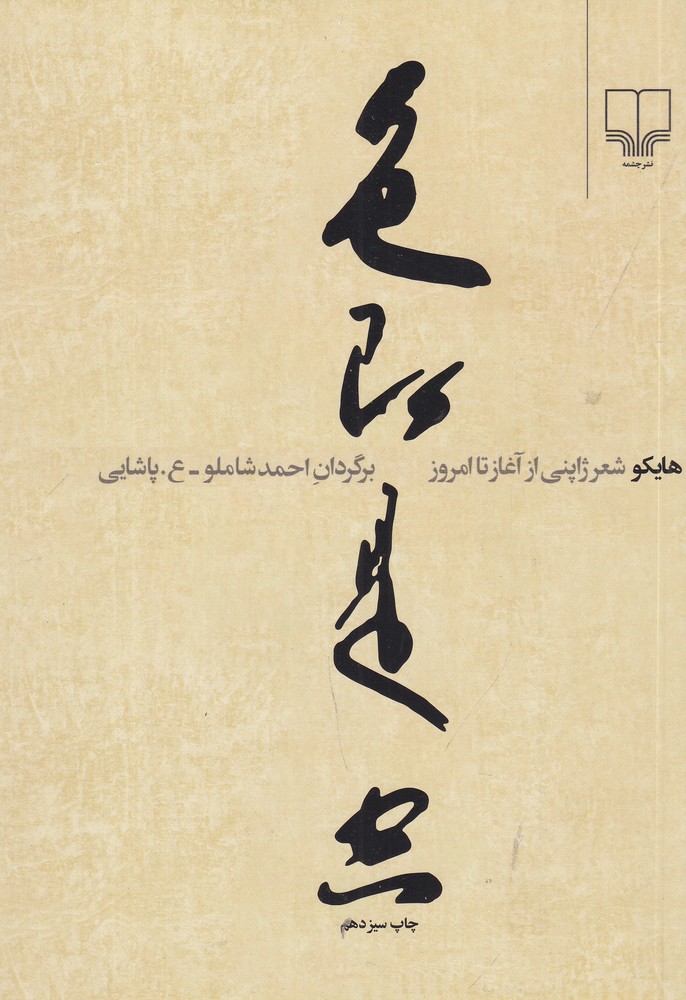 نشرچشمه
色即是空
هایکو شعر ژاپنی از آغاز تا امروز برگردانِ احمد شاملو ـ ع. پاشایی
چاپ سیزدهم